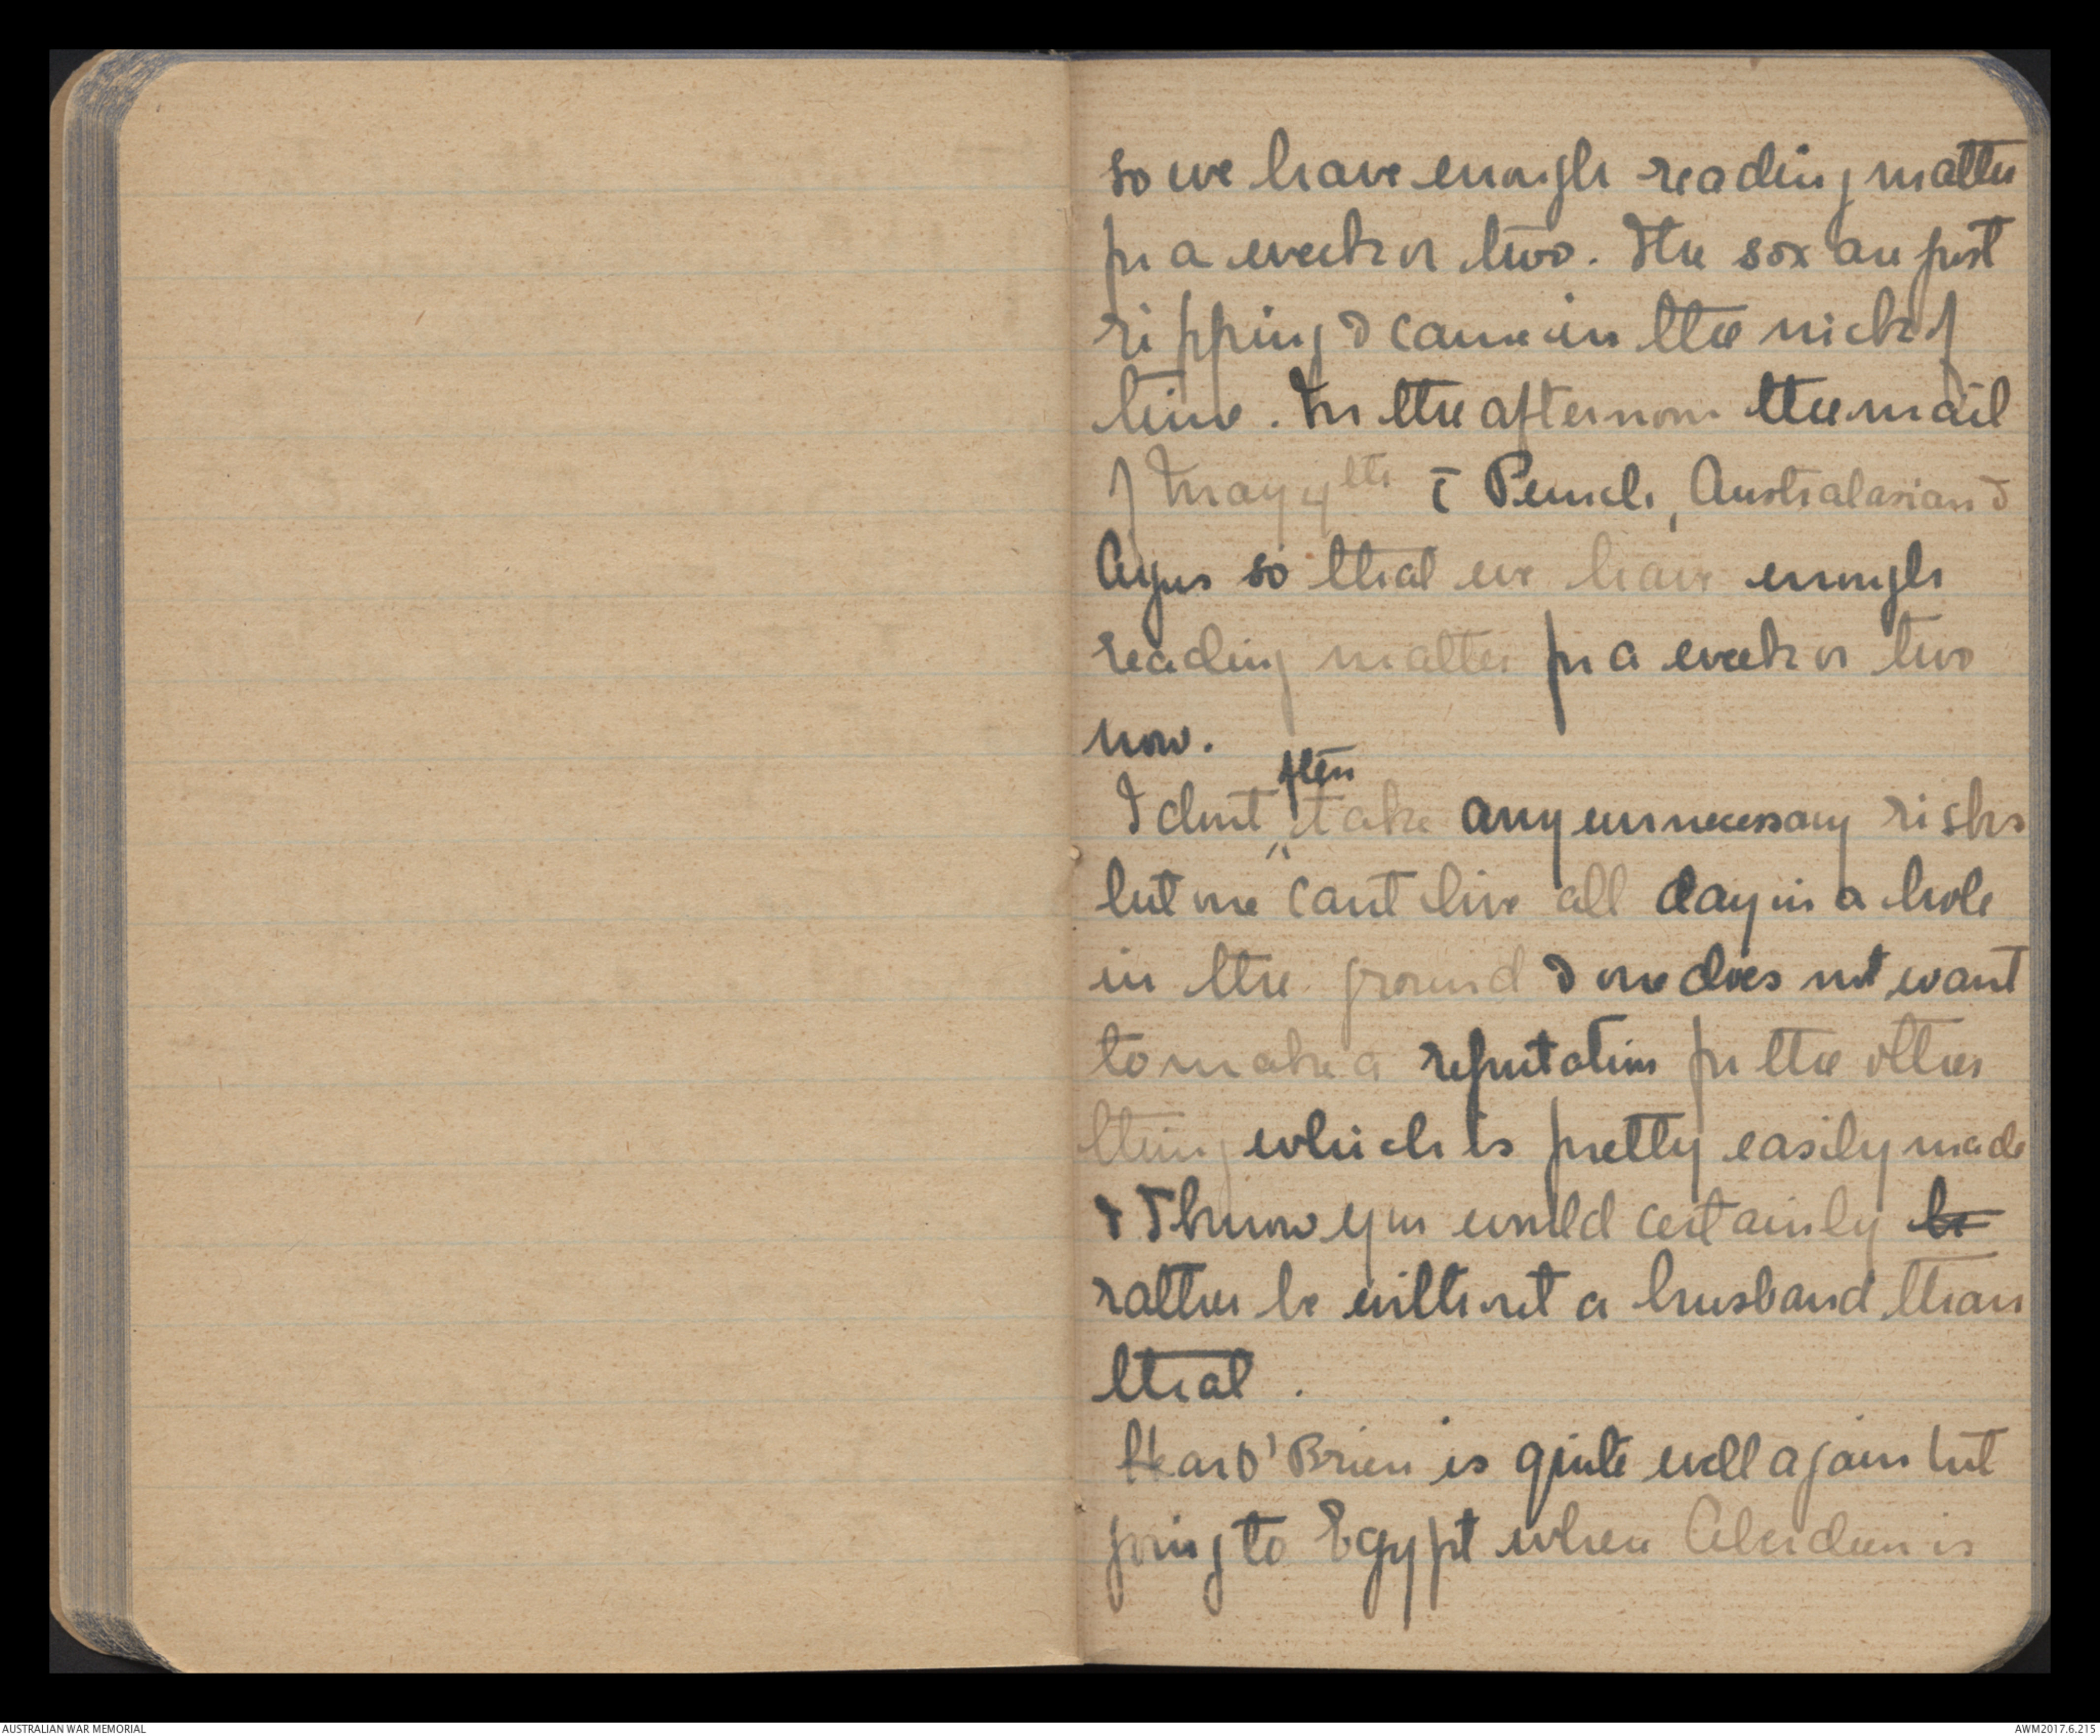 so we have enough reading matter
for a week or two. The sox are just
ripping & came in the nick of
time. In the afternoon the mail
of May 4th c̄ Punch, Australasian &
Argus so that we have enough
reading matter for a week or two
now.
I dont often take any unnecessary risks
but one cant live all day in a hole
in the ground & one does not want
to make a reputation for the other
thing which is pretty easily made
& I know you would certainly be
rather be without a husband than
that.
Hear O'Brien is quite well again but
going to Egypt when Aberdeen is
AUSTRALIAN WAR MEMORIAL
AWM2017.6.215